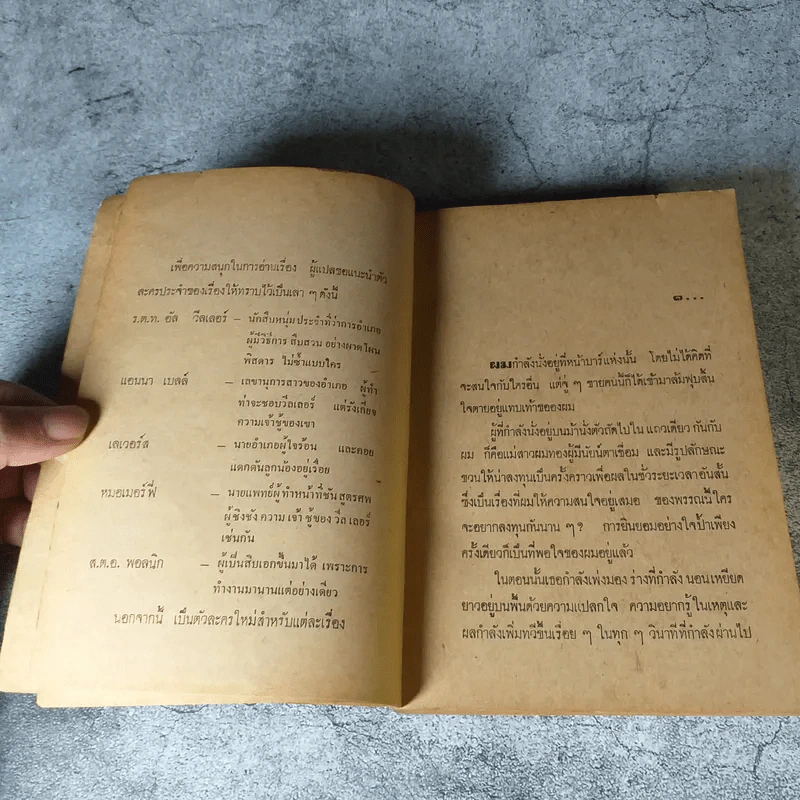 เพื่อความสนุกในการอ่านเรื่อง ผู้แปลขอแนะนำตัว
ละครประจำของเรื่องให้ทราบไว้เป็นเลา ๆ ดังนี้
ร.ต.ท. อัล วีลเลอร์ – นักสืบหนุ่มประจำที่ว่าการอำเภอ
ผู้มีวิธีการ สืบสวน อย่างผาดโผน
พิสดาร ไม่ซ้ำแบบใคร
แอนนา เบลล์ – เลขานุการสาวของอำเภอ ผู้ทำ
ท่าจะชอบวีลเลอร์ แต่รังเกียจ
ความเจ้าชู้ของเขา
เลเวอร์ส – นายอำเภอผู้ใจร้อน และคอย
แดกดันลูกน้องอยู่เรื่อย
หมอเมอร์ฟี่ – นายแพทย์ผู้ ทำหน้าที่ชันสูตรศพ
ผู้ชิงชัง ความ เจ้า ชู้ ของ วีล เลอร์
เช่นกัน
ส.ต.อ. พอลนิก – ผู้เป็นสิบเอกขึ้นมาได้ เพราะการ
ทำงานมานานแต่อย่างเดียว
นอกจากนี้ เป็นตัวละครใหม่สำหรับแต่ละเรื่อง
๑...
ผมกำลังนั่งอยู่ที่หน้าบาร์แห่งนั้น โดยไม่ได้คิดที่
จะสนใจกับใครอื่น แต่จู่ ๆ ชายคนนี้ก็ได้เข้ามาล้มฟุบสิ้น
ใจตายอยู่แทบเท้าของผม
ผู้ที่กำลังนั่งอยู่บนม้านั่งตัวถัดไปใน แถวเดียว กันกับ
ผม ก็คือแม่สาวผมทองผู้มีนัยน์ตาเชื่อม และมีรูปลักษณะ
ชวนให้น่าลงทุนเป็นครั้งคราวเพื่อผลในชั่วระยะเวลาอันสั้น
ซึ่งเป็นเรื่องที่ผมให้ความสนใจอยู่เสมอ ของพรรณนี้ใคร
จะอยากลงทุนกันนาน ๆ ? การยินยอมอย่างใจป้ำเพียง
ครั้งเดียวก็เป็นที่พอใจของผมอยู่แล้ว
ในตอนนั้นเธอกำลังเพ่งมอง ร่างที่กำลัง นอนเหยียด
ยาวอยู่บนพื้นด้วยความแปลกใจ ความอยากรู้ ในเหตุและ
ผลกำลังเพิ่มทวีขึ้นเรื่อย ๆ ในทุก ๆ วินาทีที่กำลังผ่านไป